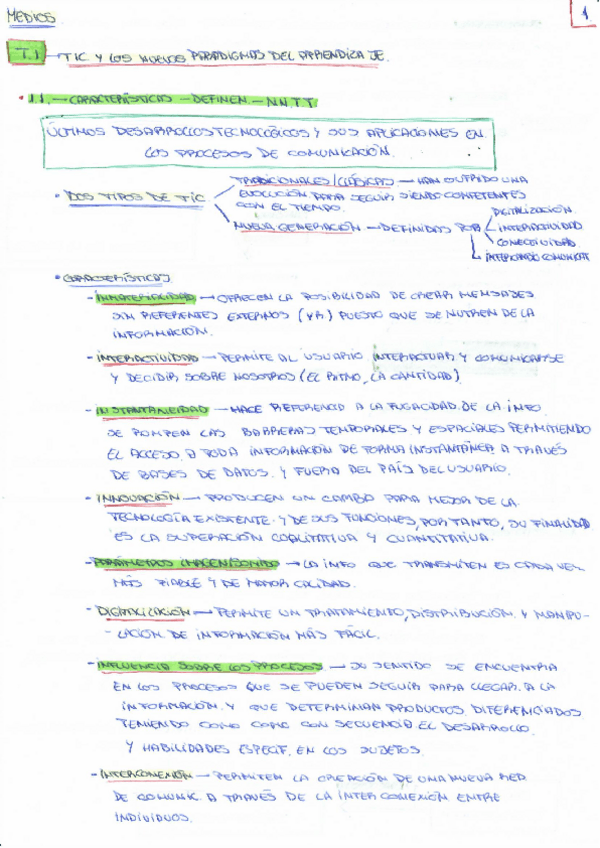 MEDIOS
1
T.1 — TIC Y LOS NUEVOS PARADIGMAS DEL APRENDIZAJE.
• 1.1. — CARACTERÍSTICAS — DEFINEN — NNTT
ÚLTIMOS DESARROLLOS TECNOLÓGICOS Y SUS APLICACIONES EN
LOS PROCESOS DE COMUNICACIÓN.
• DOS TIPOS DE TIC
TRADICIONALES/CLÁSICAS — HAN SUFRIDO UNA
EVOLUCIÓN PARA SEGUIR SIENDO COMPETENTES
CON EL TIEMPO.
NUEVA GENERACIÓN — DEFINIDAS POR
DIGITALIZACIÓN
INTERACTIVIDAD
CONECTIVIDAD
INTERCAMBIO COMUNICAT
• CARACTERÍSTICAS
- INMATERIALIDAD → OFRECEN LA POSIBILIDAD DE CREAR MENSAJES
SIN REFERENTES EXTERNOS (VR) PUESTO QUE SE NUTREN DE LA
INFORMACIÓN.
- INTERACTIVIDAD — PERMITE AL USUARIO INTERACTUAR Y COMUNICARSE
Y DECIDIR SOBRE NOSOTROS (EL RITMO, LA CANTIDAD)
- INSTANTANEIDAD — HACE REFERENCIA A LA FUGACIDAD DE LA INFO.
SE ROMPEN LAS BARRERAS TEMPORALES Y ESPACIALES PERMITIENDO
EL ACCESO A TODA INFORMACIÓN DE FORMA INSTANTÁNEA A TRAVÉS
DE BASES DE DATOS. Y FUERA DEL PAÍS DEL USUARIO.
- INNOVACIÓN — PRODUCEN UN CAMBIO PARA MEJOR DE LA
TECNOLOGÍA EXISTENTE. Y DE SUS FUNCIONES, POR TANTO, SU FINALIDAD
ES LA SUPERACIÓN CUALITATIVA Y CUANTITATIVA.
- PARÁMETROS IMAGEN/SONIDO → LA INFO QUE TRANSMITEN ES CADA VEZ
MÁS FIABLE Y DE MAYOR CALIDAD.
- DIGITALIZACIÓN — PERMITE UN TRATAMIENTO, DISTRIBUCIÓN Y MANIPU-
- LACIÓN DE INFORMACIÓN MÁS FÁCIL.
- INFLUENCIA SOBRE LOS PROCESOS — SU SENTIDO SE ENCUENTRA
EN LOS PROCESOS QUE SE PUEDEN SEGUIR PARA LLEGAR A LA
INFORMACIÓN Y QUE DETERMINAN PRODUCTOS DIFERENCIADOS
TENIENDO COMO CONSECUENCIA EL DESARROLLO
Y HABILIDADES ESPECIF. EN LOS SUJETOS.
- INTERCONEXIÓN — PERMITEN LA CREACIÓN DE UNA NUEVA RED
DE COMUNIC. A TRAVÉS DE LA INTERCONEXIÓN ENTRE
INDIVIDUOS.